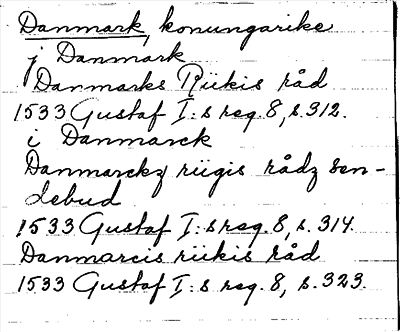 Danmark, konungarike
j Danmark
Danmarks Riikis råd
1533 Gustaf I:s reg. 8, s. 312.
i Danmarck
Danmarckz riigis rådz sen-
debud
1533 Gustaf I:s reg. 8, s. 314.
Danmarcis riikis råd
1533 Gustaf I:s reg. 8, s. 323.